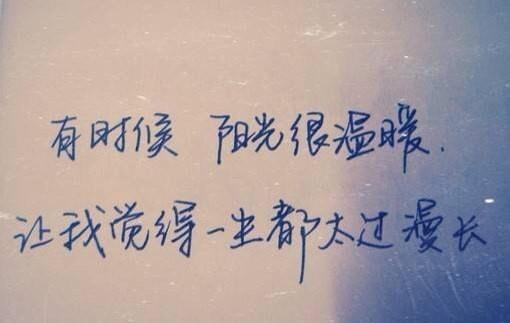 有时候 阳光很温暖.
让我觉得一坐都太过漫长